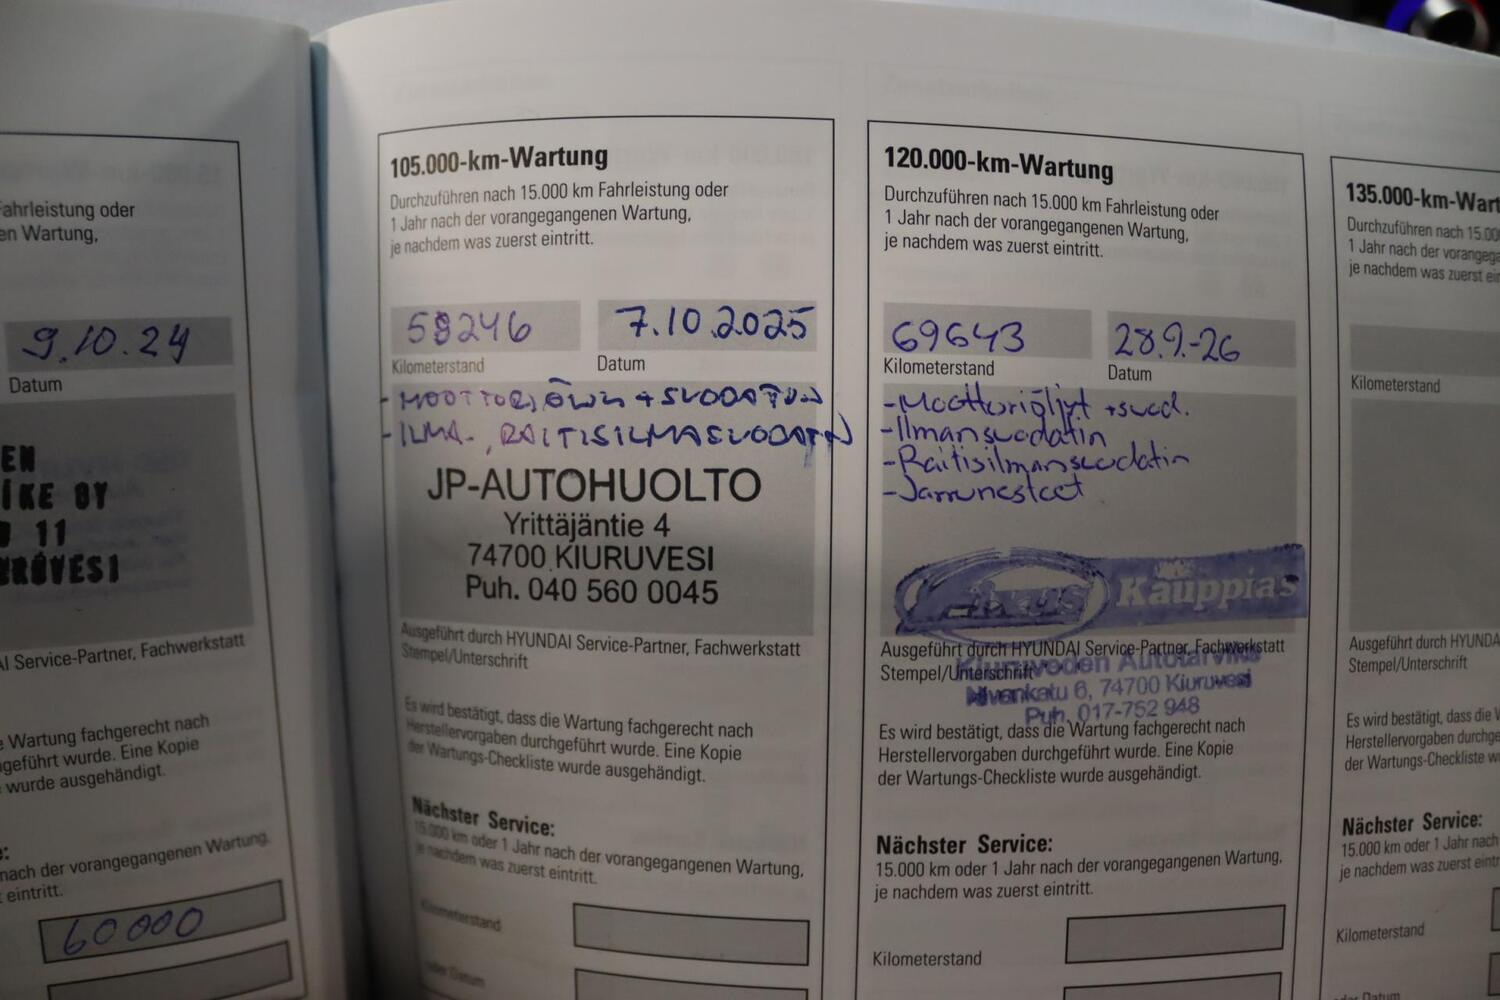 ahrleistung oder
en Wartung,
9.10.24
Datum
EN
IKE OY
11
RÖVESI
AI Service-Partner, Fachwerkstatt
e Wartung fachgerecht nach
geführt wurde. Eine Kopie
wurde ausgehändigt.
nach der vorangegangenen Wartung,
eintritt.
60000
105.000-km-Wartung
Durchzuführen nach 15.000 km Fahrleistung oder
1 Jahr nach der vorangegangenen Wartung,
je nachdem was zuerst eintritt.
58246 7.10.2025
Kilometerstand Datum
- MOOTTORIÖLJY + SUODATIN
- ILMA-, RAITISILMASUODATIN
JP-AUTOHUOLTO
Yrittäjäntie 4
74700 KIURUVESI
Puh. 040 560 0045
Ausgeführt durch HYUNDAI Service-Partner, Fachwerkstatt
Stempel/Unterschrift
Es wird bestätigt, dass die Wartung fachgerecht nach
Herstellervorgaben durchgeführt wurde. Eine Kopie
der Wartungs-Checkliste wurde ausgehändigt.
Nächster Service:
15.000 km oder 1 Jahr nach der vorangegangenen Wartung,
je nachdem was zuerst eintritt.
Kilometerstand
oder Datum
120.000-km-Wartung
Durchzuführen nach 15.000 km Fahrleistung oder
1 Jahr nach der vorangegangenen Wartung,
je nachdem was zuerst eintritt.
69643 28.9.-26
Kilometerstand Datum
- Moottoriöljyt + suod.
- Ilmansuodatin
- Raitisilmansuodatin
- Jarrunesteet
Kauppias
Ausgeführt durch HYUNDAI Service-Partner, Fachwerkstatt
Stempel/Unterschrift
Kiuruveden Autotarvike
Nivankatu 6, 74700 Kiuruvesi
Puh. 017-752 948
Es wird bestätigt, dass die Wartung fachgerecht nach
Herstellervorgaben durchgeführt wurde. Eine Kopie
der Wartungs-Checkliste wurde ausgehändigt.
Nächster Service:
15.000 km oder 1 Jahr nach der vorangegangenen Wartung,
je nachdem was zuerst eintritt.
Kilometerstand
135.000-km-Wart
Durchzuführen nach 15.00
1 Jahr nach der vorangega
je nachdem was zuerst ein
Kilometerstand
Ausgeführt durch HYUNDA
Stempel/Unterschrift
Es wird bestätigt, dass die W
Herstellervorgaben durchge
der Wartungs-Checkliste w
Nächster Service:
15.000 km oder 1 Jahr nach
je nachdem was zuerst eint
Kilometerstand
oder Datum